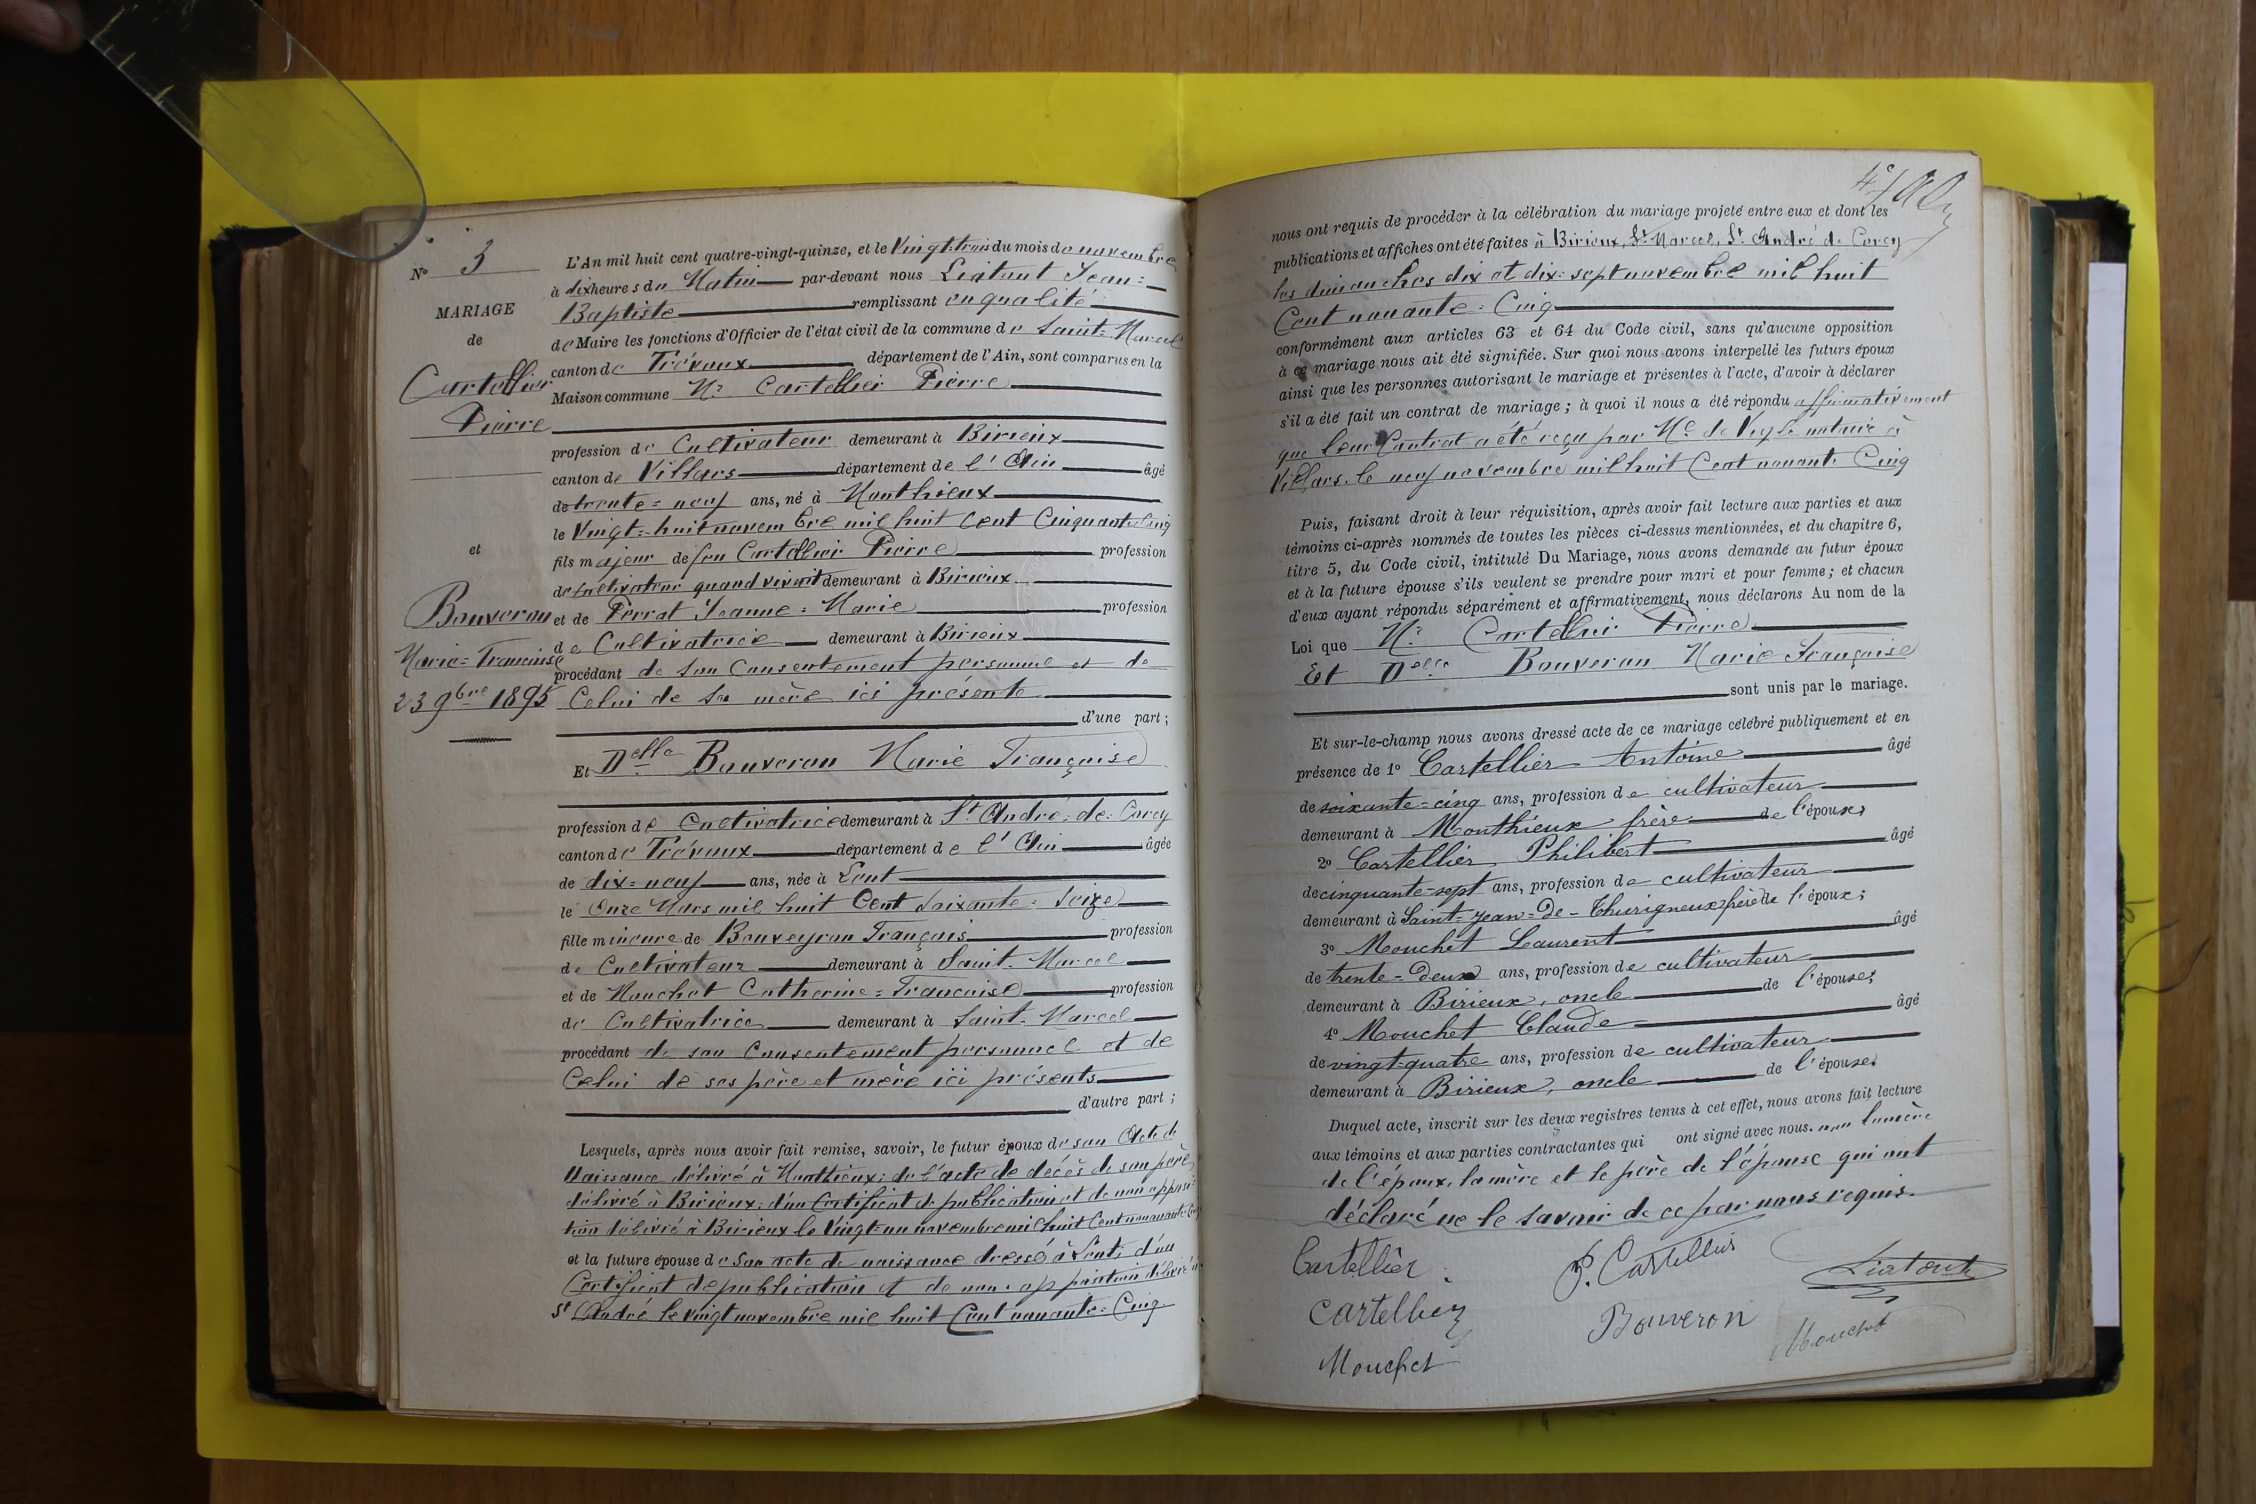 N° 3
MARIAGE
de
Cartellier
Pierre
et
Bouveron
Marie=Francoise
23 9bre 1895
L'An mil huit cent quatre-vingt-quinze, et le Vingt-trois du mois de novembre
à dix heures du Matin par-devant nous Liatout Jean=
Baptiste remplissant en qualité
de Maire les fonctions d'Officier de l'état civil de la commune de Saint=Marcel
canton de Trévoux département de l'Ain, sont comparus en la
Maison commune Mr Cartellier Pierre
profession de Cultivateur demeurant à Birieux
canton de Villars département de l'Ain âgé
de trente=neuf ans, né à Monthieux
le Vingt=huit novembre mil huit cent Cinquante Cinq
fils majeur de feu Cartellier Pierre profession
de Cultivateur quand vivait demeurant à Birieux
et de Perrat Jeanne=Marie profession
de Cultivatrice demeurant à Birieux
procédant de son Consentement personnel et de
Celui de sa mère ici présente
d'une part ;
Et Delle Bouveron Marie Françoise
profession de Cultivatrice demeurant à St André-de-Corcy
canton de Trévoux département de l'Ain âgée
de dix=neuf ans, née à Lent
le Onze Mars mil huit Cent Soixante=Seize
fille mineure de Bouveyron Français profession
de Cultivateur demeurant à Saint-Marcel
et de Mouchet Catherine=Francoise profession
de Cultivatrice demeurant à Saint-Marcel
procédant de son Consentement personnel et de
Celui de ses père et mère ici présents
d'autre part ;
Lesquels, après nous avoir fait remise, savoir, le futur époux de son Acte de
Naissance délivré à Monthieux; de l'acte de décès de son père
délivré à Birieux; d'un Certificat de publication et de non opposi=
tion délivré à Birieux le Vingt=un novembre mil huit Cent nonante Cinq
et la future épouse de son acte de naissance dressé à Lent; d'un
Certificat de publication et de non=opposition délivré à
St André le vingt novembre mil huit Cent nonante=Cinq
nous ont requis de procéder à la célébration du mariage projeté entre eux et dont les
publications et affiches ont été faites à Birieux, St Marcel, St André de Corcy
les dimanches dix et dix=sept novembre mil huit
Cent nonante=Cinq
conformément aux articles 63 et 64 du Code civil, sans qu'aucune opposition
à ce mariage nous ait été signifiée. Sur quoi nous avons interpellé les futurs époux
ainsi que les personnes autorisant le mariage et présentes à l'acte, d'avoir à déclarer
s'il a été fait un contrat de mariage ; à quoi il nous a été répondu affirmativement
que leur Contrat a été reçu par Me de notaire à
Villars, le neuf novembre mil huit Cent nonante Cinq
Puis, faisant droit à leur réquisition, après avoir fait lecture aux parties et aux
témoins ci-après nommés de toutes les pièces ci-dessus mentionnées, et du chapitre 6,
titre 5, du Code civil, intitulé Du Mariage, nous avons demandé au futur époux
et à la future épouse s'ils veulent se prendre pour mari et pour femme ; et chacun
d'eux ayant répondu séparément et affirmativement, nous déclarons Au nom de la
Loi que Mr Cartellier Pierre
Et Delle Bouveron Marie Françoise
sont unis par le mariage.
Et sur-le-champ nous avons dressé acte de ce mariage célébré publiquement et en
présence de 1° Cartellier Antoine âgé
de soixante=cinq ans, profession de cultivateur
demeurant à Monthieux frère de l'époux;
2° Cartellier Philibert âgé
de cinquante-sept ans, profession de cultivateur
demeurant à Saint=Jean=de-Thurigneux frère de l'époux;
3° Mouchet Laurent âgé
de trente-deux ans, profession de cultivateur
demeurant à Birieux, oncle de l'épouse;
4° Mouchet Claude âgé
de vingt-quatre ans, profession de cultivateur
demeurant à Birieux, oncle de l'épouse.
Duquel acte, inscrit sur les deux registres tenus à cet effet, nous avons fait lecture
aux témoins et aux parties contractantes qui ont signé avec nous. non la mère
de l'époux, la mère et le père de l'épouse qui ont
déclaré ne le savoir de ce par nous requis.
Cartellier P. Cartellier Liatout
Cartellier Bouveron Mouchet
Mouchet